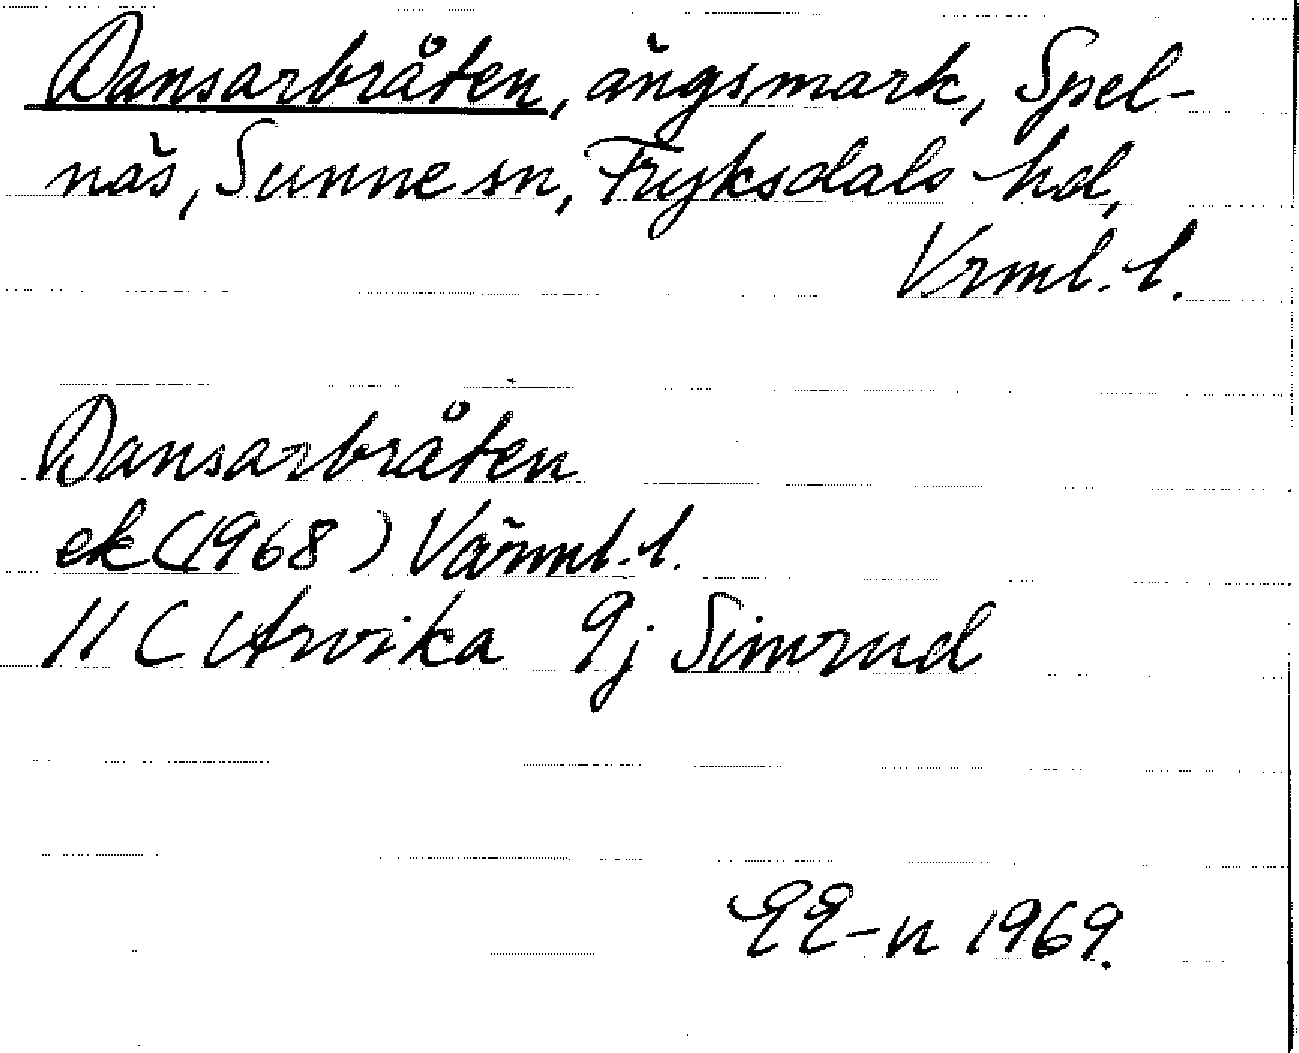 Dansarbråten, ängsmark, Spel-
näs, Sunne sn, Fryksdals hd,
Vrml. l.
Dansarbråten
ek (1968) Värml. l.
11 C Arvika 9j Simrud
EE-n 1969.